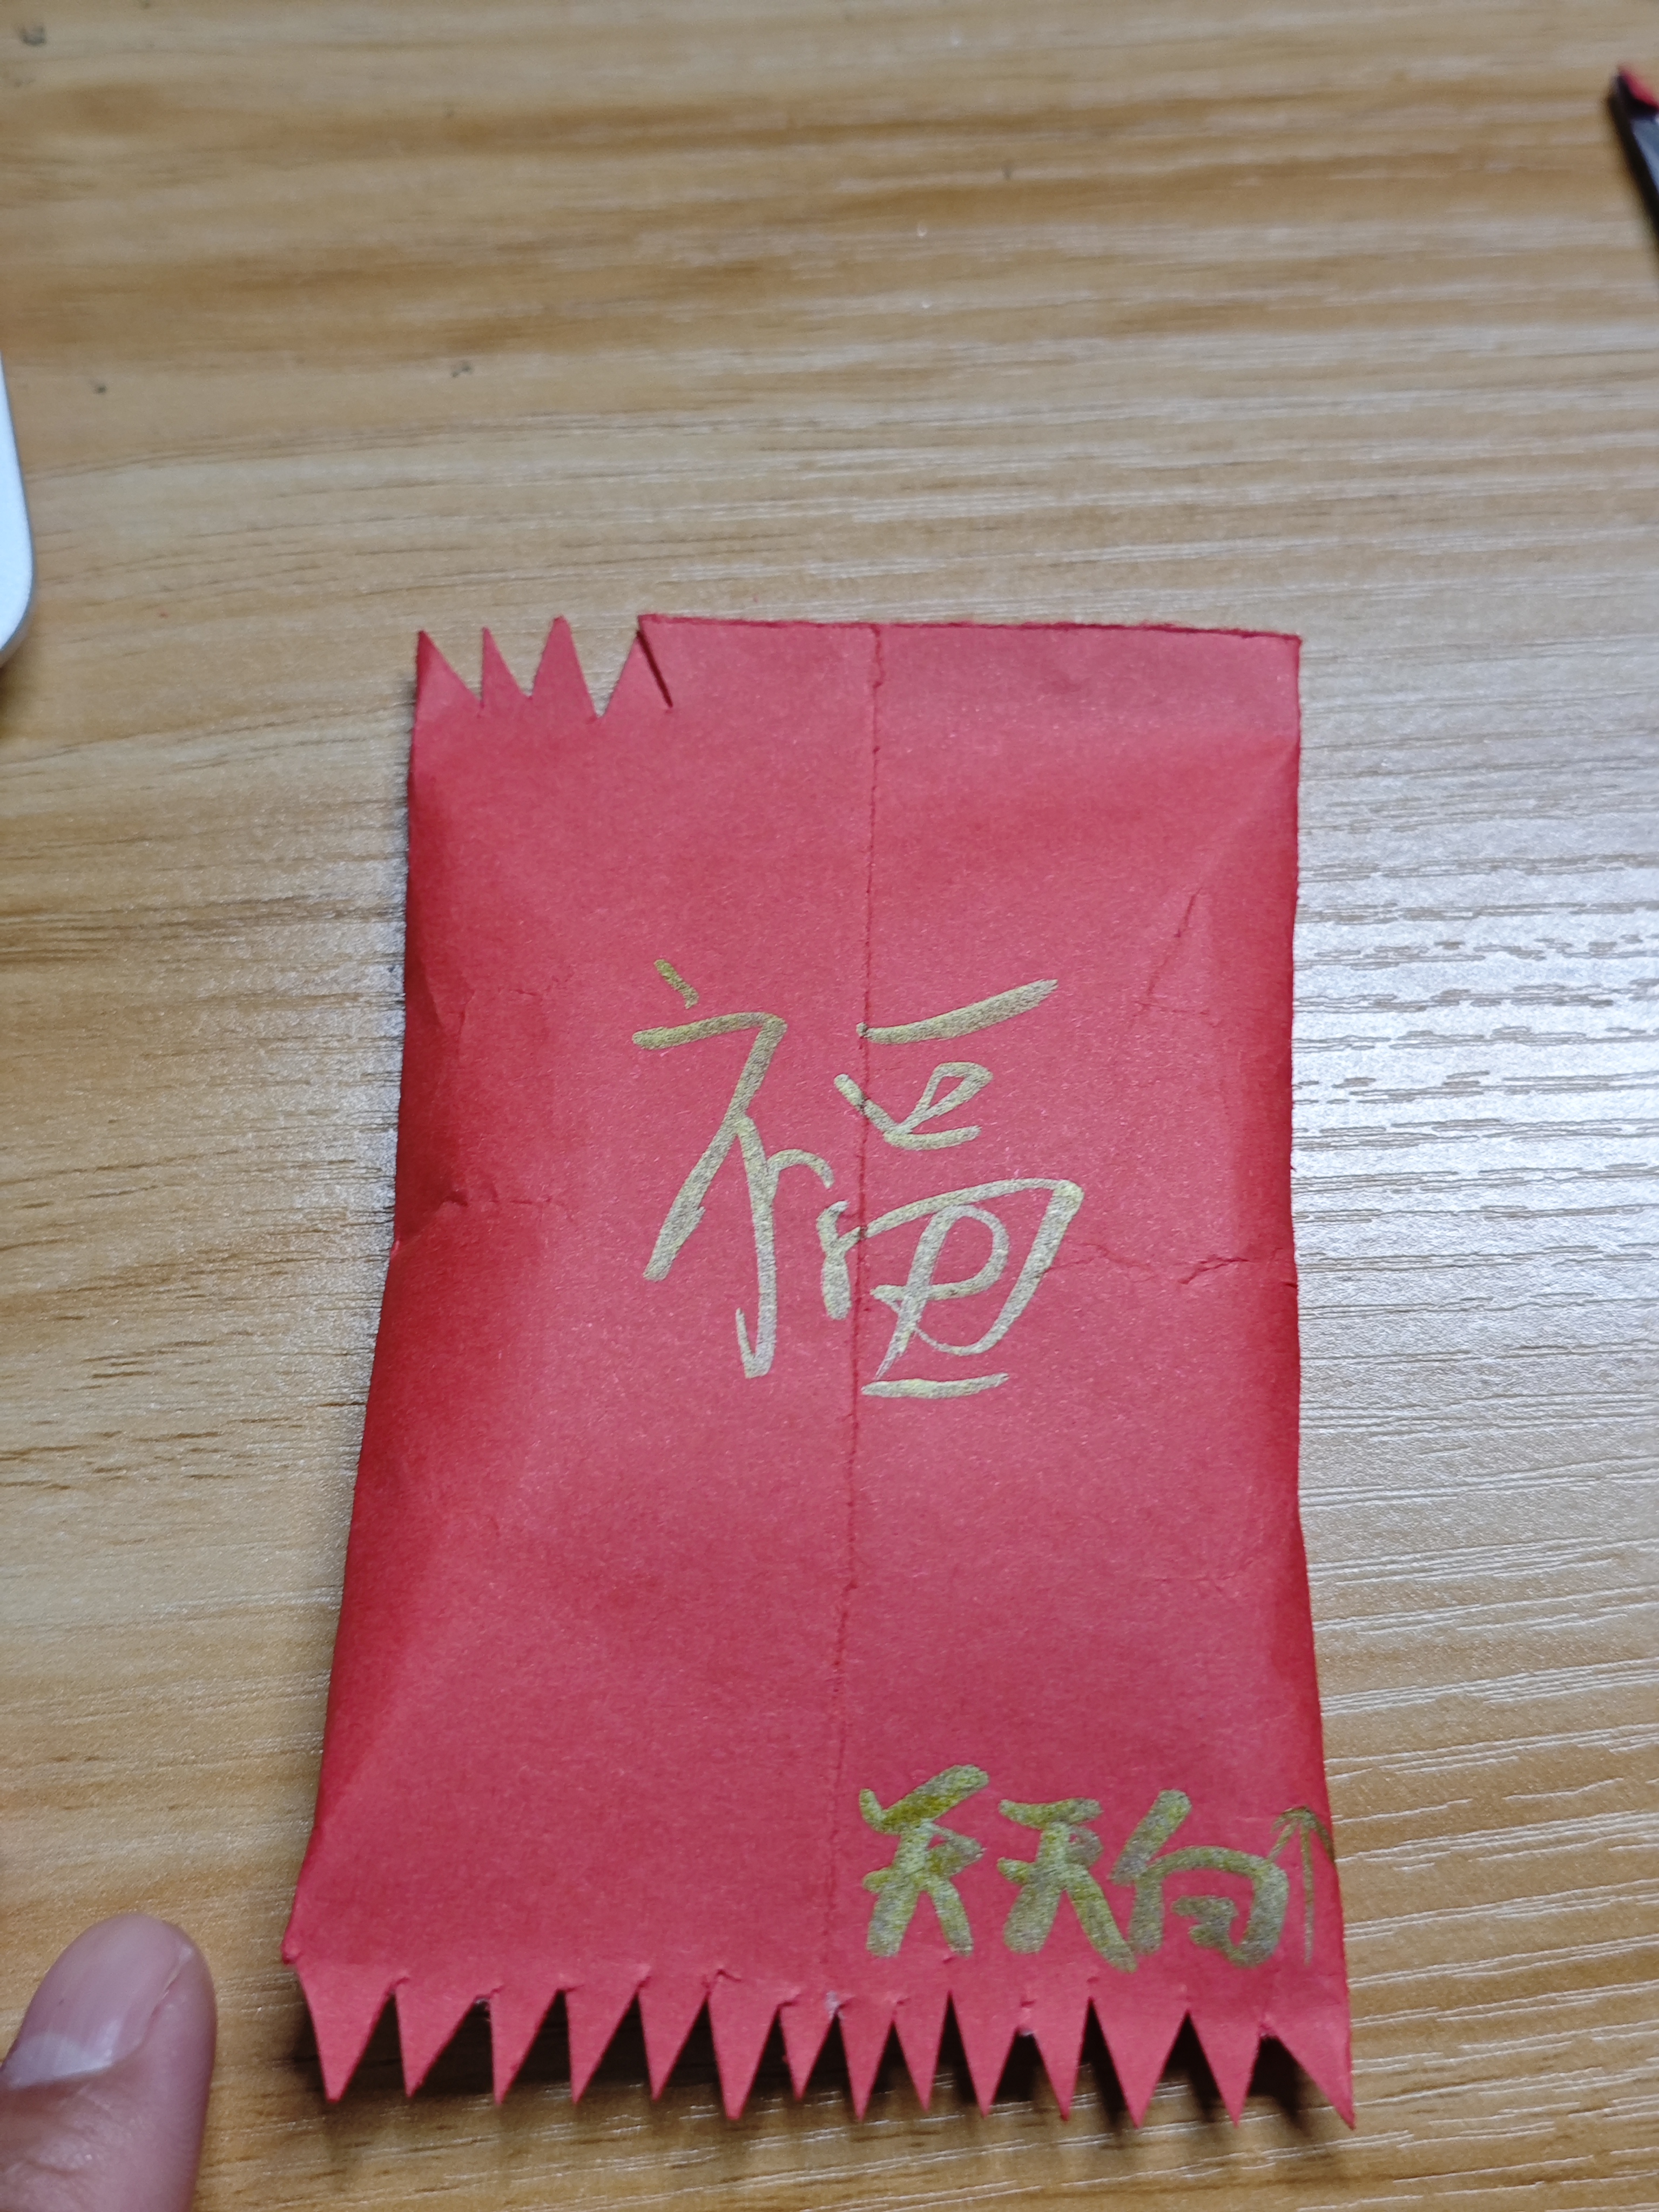 福
天天向↑